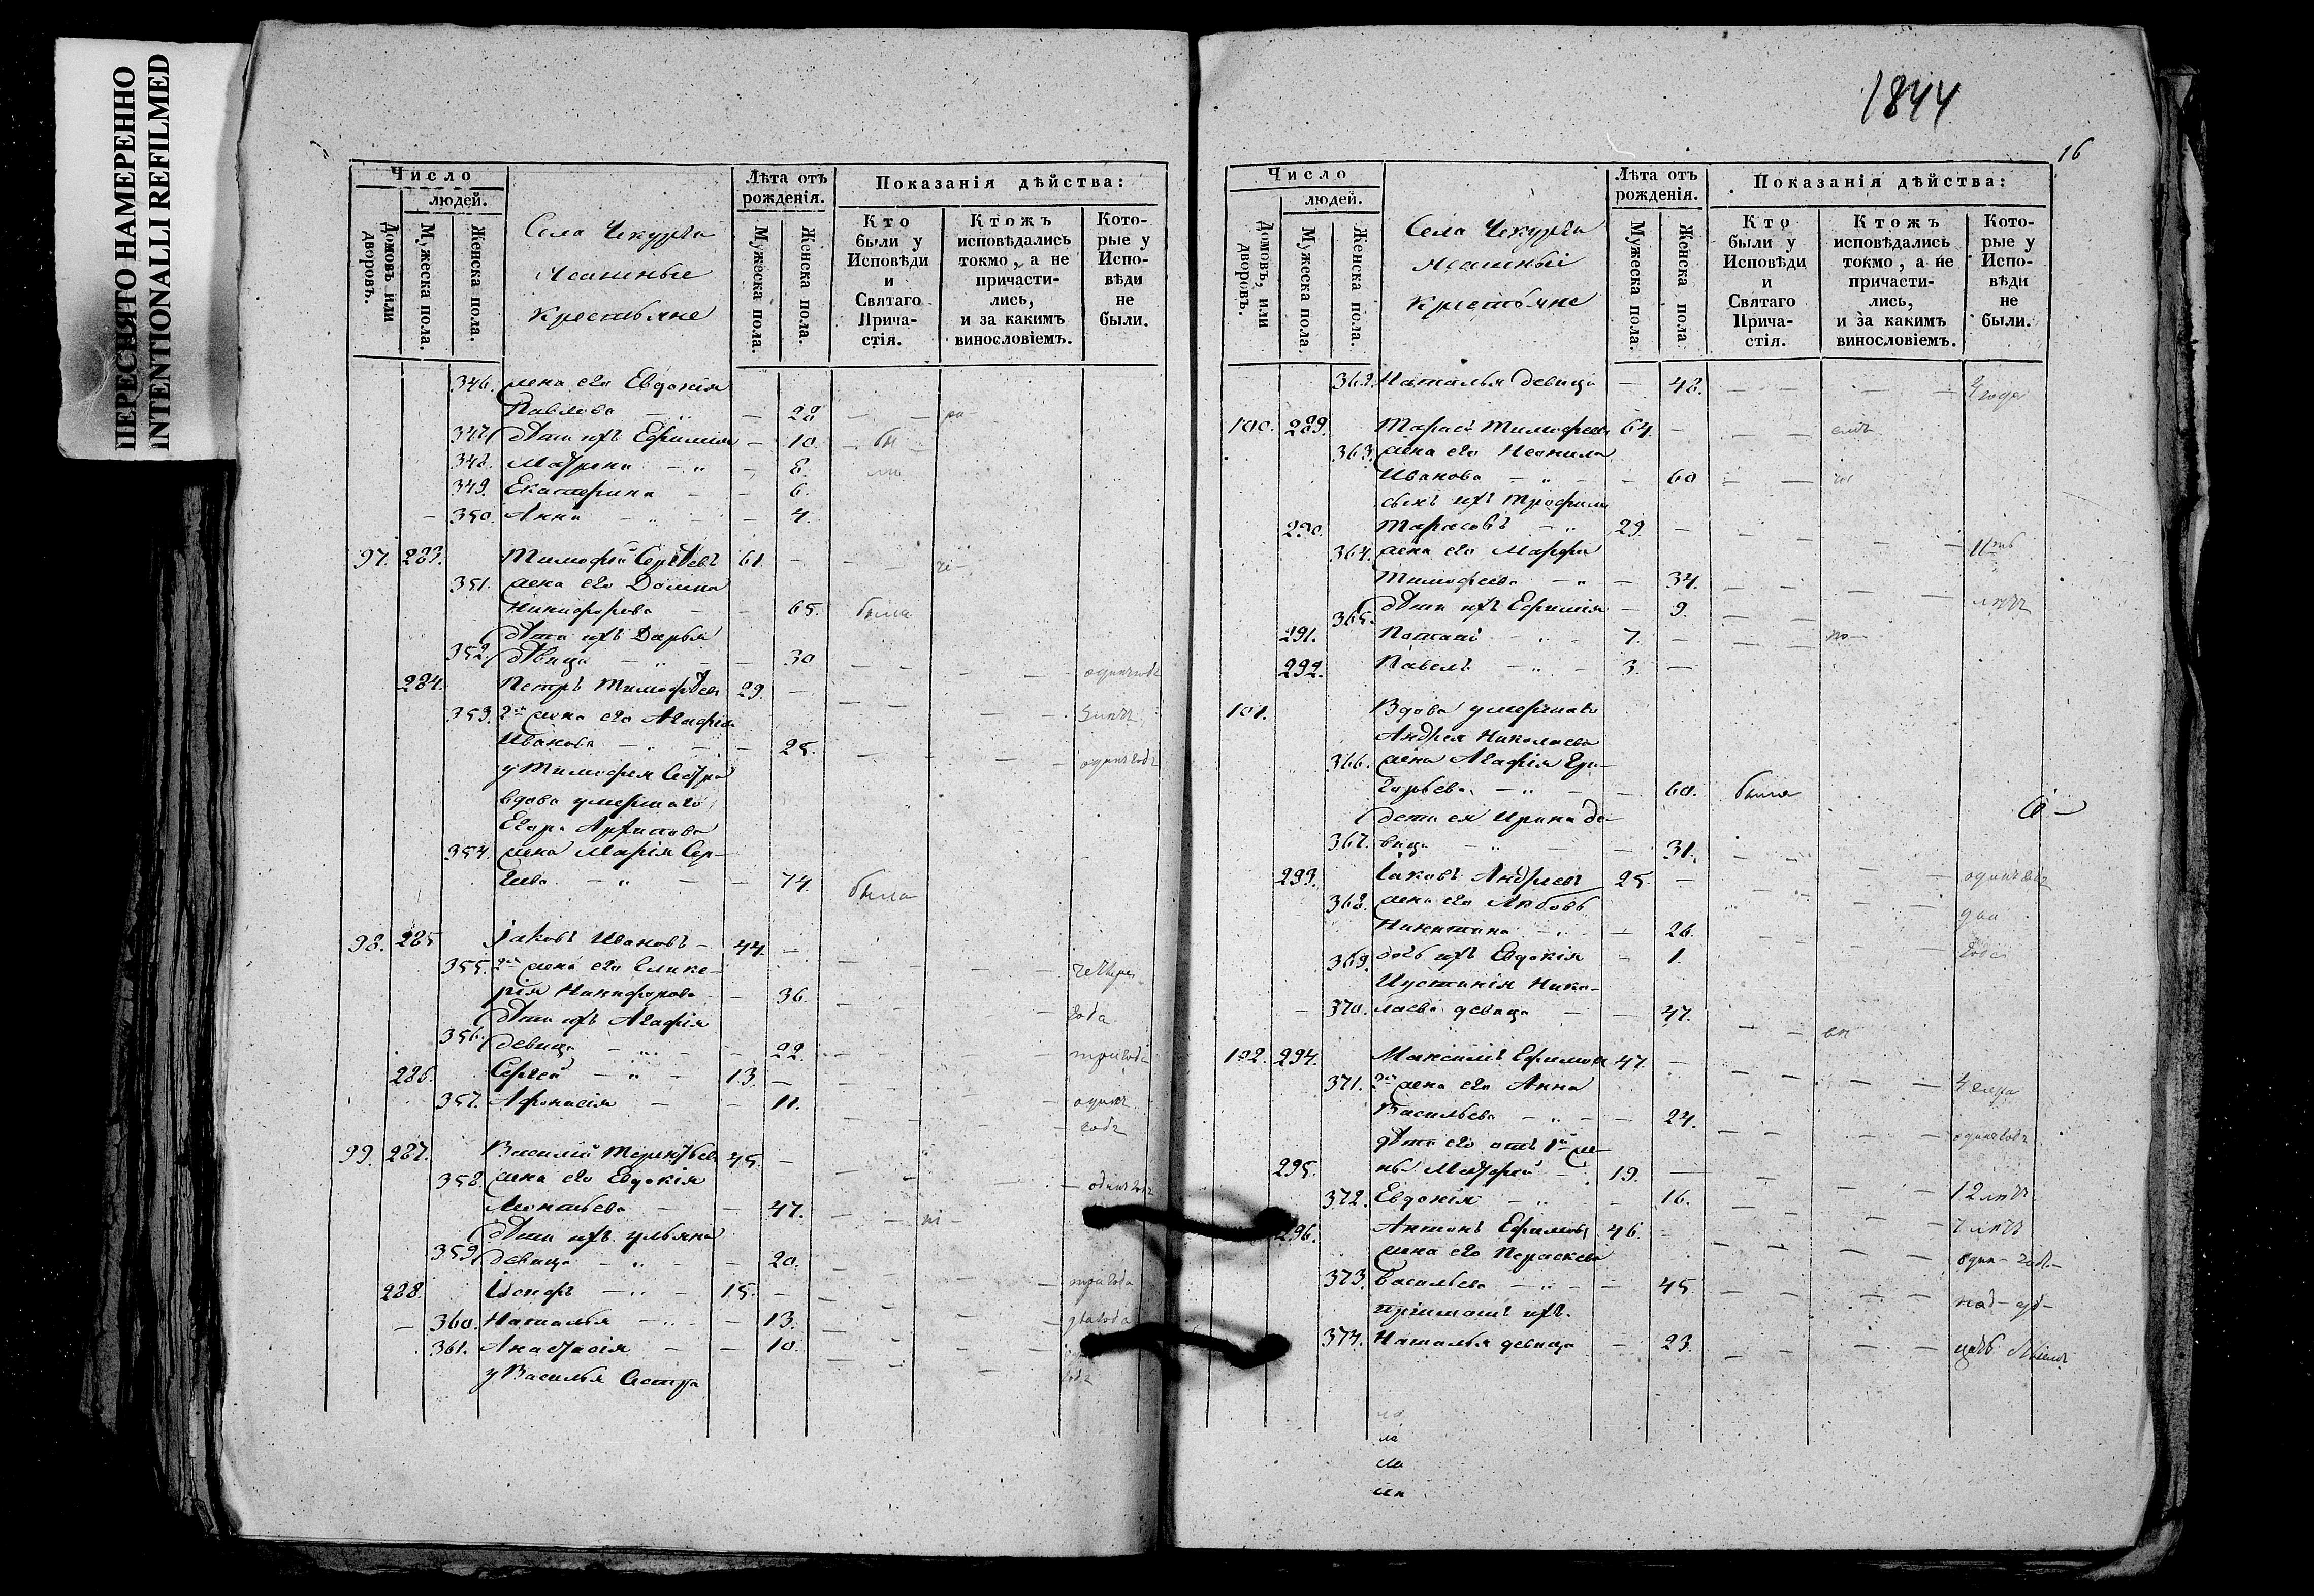 ПЕРЕСНЯТО НАМЕРЕННО
INTENTIONALLI REFILMED
Число
людей.
Домовъ или дворовъ.
Мужеска пола.
Женска пола.
Села Чекурга
Ясашные
крестьяне
Лѣта отъ рожденія.
Мужеска пола.
Женска пола.
Показанія дѣйства:
Кто были у Исповѣди и Святаго Прича-стія.
Ктожъ исповѣдались токмо, а не причасти-лись, и за какимъ винословіемъ.
Кото-рые у Испо-вѣди не были.
346. жена его Евдокія
Павлова — — 28 — —
347. дѣти ихъ Ефимія — 10. — бы
348. Матрена — „ — 8.
349. Екатерина — — 6.
— 350. Анна — „ — — 4.
97. 283. Тимофей Сергѣевъ 61. —
351. жена его Домна
Никифорова — — 65. была
дѣти ихъ Дарья
352. дѣвица — „ — — 30 — —
284. Петръ Тимофѣевъ 29. —
353. 2я жена его Агафья
Иванова — „ — — 25. — одинъ годъ
у Тимофея сестра
вдова умершаго
Егора Архипова
354. жена Марія Сер-
геева — „ — — 74. была
98. 285 Іаковъ Ивановъ — 44. —
355. 2я жена его Глике-
рія Никифорова — 36. — года
дѣти ихъ Агафія
356. девица — „ — — 22. — три года
286. Сергей — „ — 13. —
357. Афонасія — — 11. одинъ
годъ
99. 287. Василій Терентьевъ 45. —
358. жена его Евдокія одинъ годъ
Леонтьева — — 47. —
дѣти ихъ Ульяна
359. девица — „ — — 20. —
288. Іосифъ — „ — 15. — три года
— 360. Наталья — „ — 13. — два года
361. Анастасія — — 10. —
у Василья сестра годъ
1844
16
Число
людей.
Домовъ, или дворовъ.
Мужеска пола.
Женска пола.
Села Чекурга
ясашныі
крестьяне
Лѣта отъ рожденія.
Мужеска пола.
Женска пола
Показанія дѣйства:
Кто были у Исповѣди и Святаго Прича-стія.
Ктожъ исповѣдались токмо, а не причасти-лись, и за какимъ винословіемъ.
Кото-рые у Испо-вѣди не были.
362. Наталья девица — 48. — —
100. 289. Тарасъ Тимофеевъ 64. —
363. жена его Неонила
Иванова — „ — — 60 —
сынъ ихъ Трофимъ
290. Тарасовъ — „ 29. —
364. жена его Марфа
Тимофеева — „ — 34. —
365. дѣти ихъ Ефимія — 9. —
291. Потапъ — „ — 7. —
292. Павелъ — „ — 3. —
101. Вдова умершаго
Андрея Николаева
366. жена Агафія Гри-
горьева — „ — — 60. была
дети ея Ирина де-
367. вица — „ — — 31. —
293. Іаковъ Андреевъ 25. — одинъ годъ
368. жена его Любовь два
Никитина — „ — 26. —
369. дочь ихъ Евдокія — 1. года
Иустинія Нико-
— 370. лаева девица — — 47. —
102. 294. Максимъ Ефимовъ 47. —
371. 2я жена его Анна
Васильева — „ — — 24. — одинъ годъ
дѣти его отъ 1й же-
295. ны Матфей — „ 19. —
372. Евдокія — „ — 16. — 12 лѣтъ
296. Антонъ Ефимовъ 46 — 7 лѣтъ
жена его Параскева
373. Васильева — „ — — 45. —
пріимышъ ихъ
374. Наталья девица — 23. —